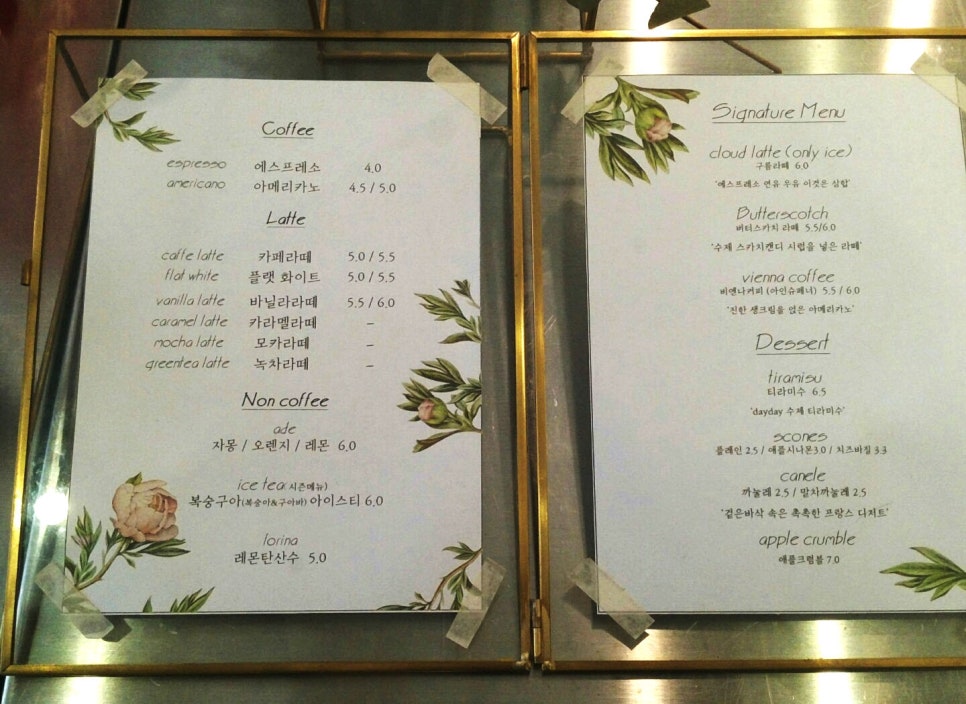 Coffee
espresso 에스프레소 4.0
americano 아메리카노 4.5 / 5.0
Latte
caffe latte 카페라떼 5.0 / 5.5
flat white 플랫 화이트 5.0 / 5.5
vanilla latte 바닐라라떼 5.5 / 6.0
caramel latte 카라멜라떼 –
mocha latte 모카라떼 –
greentea latte 녹차라떼 –
Non coffee
ade
자몽 / 오렌지 / 레몬 6.0
ice tea(시즌메뉴)
복숭구아(복숭아&구아바) 아이스티 6.0
lorina
레몬탄산수 5.0
Signature Menu
cloud latte (only ice)
구름라떼 6.0
'에스프레소 연유 우유 이것은 삼합'
Butterscotch
버터스카치 라떼 5.5/6.0
'수제 스카치캔디 시럽을 넣은 라떼'
vienna coffee
비엔나커피 (아인슈페너) 5.5 / 6.0
'진한 생크림을 얹은 아메리카노'
Dessert
tiramisu
티라미수 6.5
'dayday 수제 티라미수'
scones
플레인 2.5 / 애플시나몬3.0 / 치즈바질 3.3
canele
까눌레 2.5 / 말차까눌레 2.5
'겉은바삭 속은 촉촉한 프랑스 디저트'
apple crumble
애플크럼블 7.0